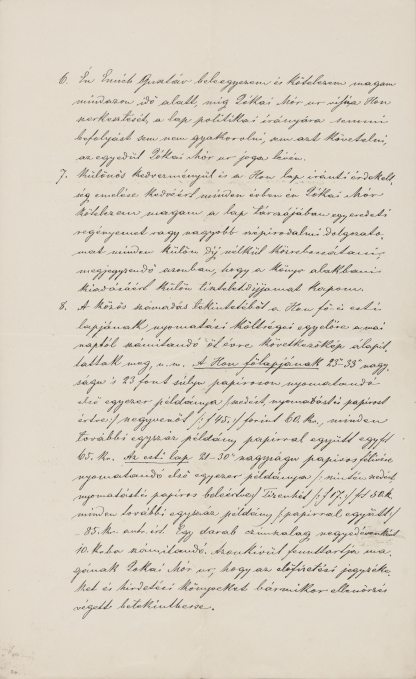 6. Én Emich Gusztáv beleegyezem és kötelezem magam
mindazon idő alatt, míg Jókai Mór ur viszi a Hon
szerkesztését, a lap politikai irányára semmi
befolyást sem nem gyakorolni, sem azt követelni,
az egyedül Jókai Mór ur joga lévén.
7. Különös kedvezményül és a Hon lap iránti érdekelt-
ség emelése kedvéért minden évben én Jókai Mór
kötelezem magam a lap tárczájában egy eredeti
regényemet vagy nagyobb szépirodalmi dolgozato-
mat minden külön díj nélkül közrebocsátani,
megjegyzendő azonban, hogy a könyv alakbani
kiadásáért külön tiszteletdíjjamat kapom.
8. A közös számadás tekintetéből a Hon fő és esti
lapjának nyomatási költségei egyelőre a mai
naptól számítandó öt évre következőkép álapít-
tattak meg, u. m. A Hon főlapjának 25-38" nagy-
ságu 's 23 font súlyu papiroson nyomatandó
első egyezer példánya /:szedést, nyomdást és papirost
értve:/ negyvenöt /:f 45,:/ forint 60. kr., minden
további egyszáz példány papirral együtt egy ft
65. kr. Az esti lap 21-30" nagyságu papiros félívre
nyomatandó első egyezer példánya
nyomást és papiros beleértve/ tizenhét /:f 17,:/ ft 50 kr
minden további egyszáz példány /:papirral együtt:/
-85. kr. Egy darab czimszalag negyedévenként
10. krba számítandó. Azonkívül fenntartja ma-
gának Jókai Mór ur, hogy az előfizetési jegyzéke-
ket és hirdetési könyveket bármikor ellenőrzés
végett betekinthesse.